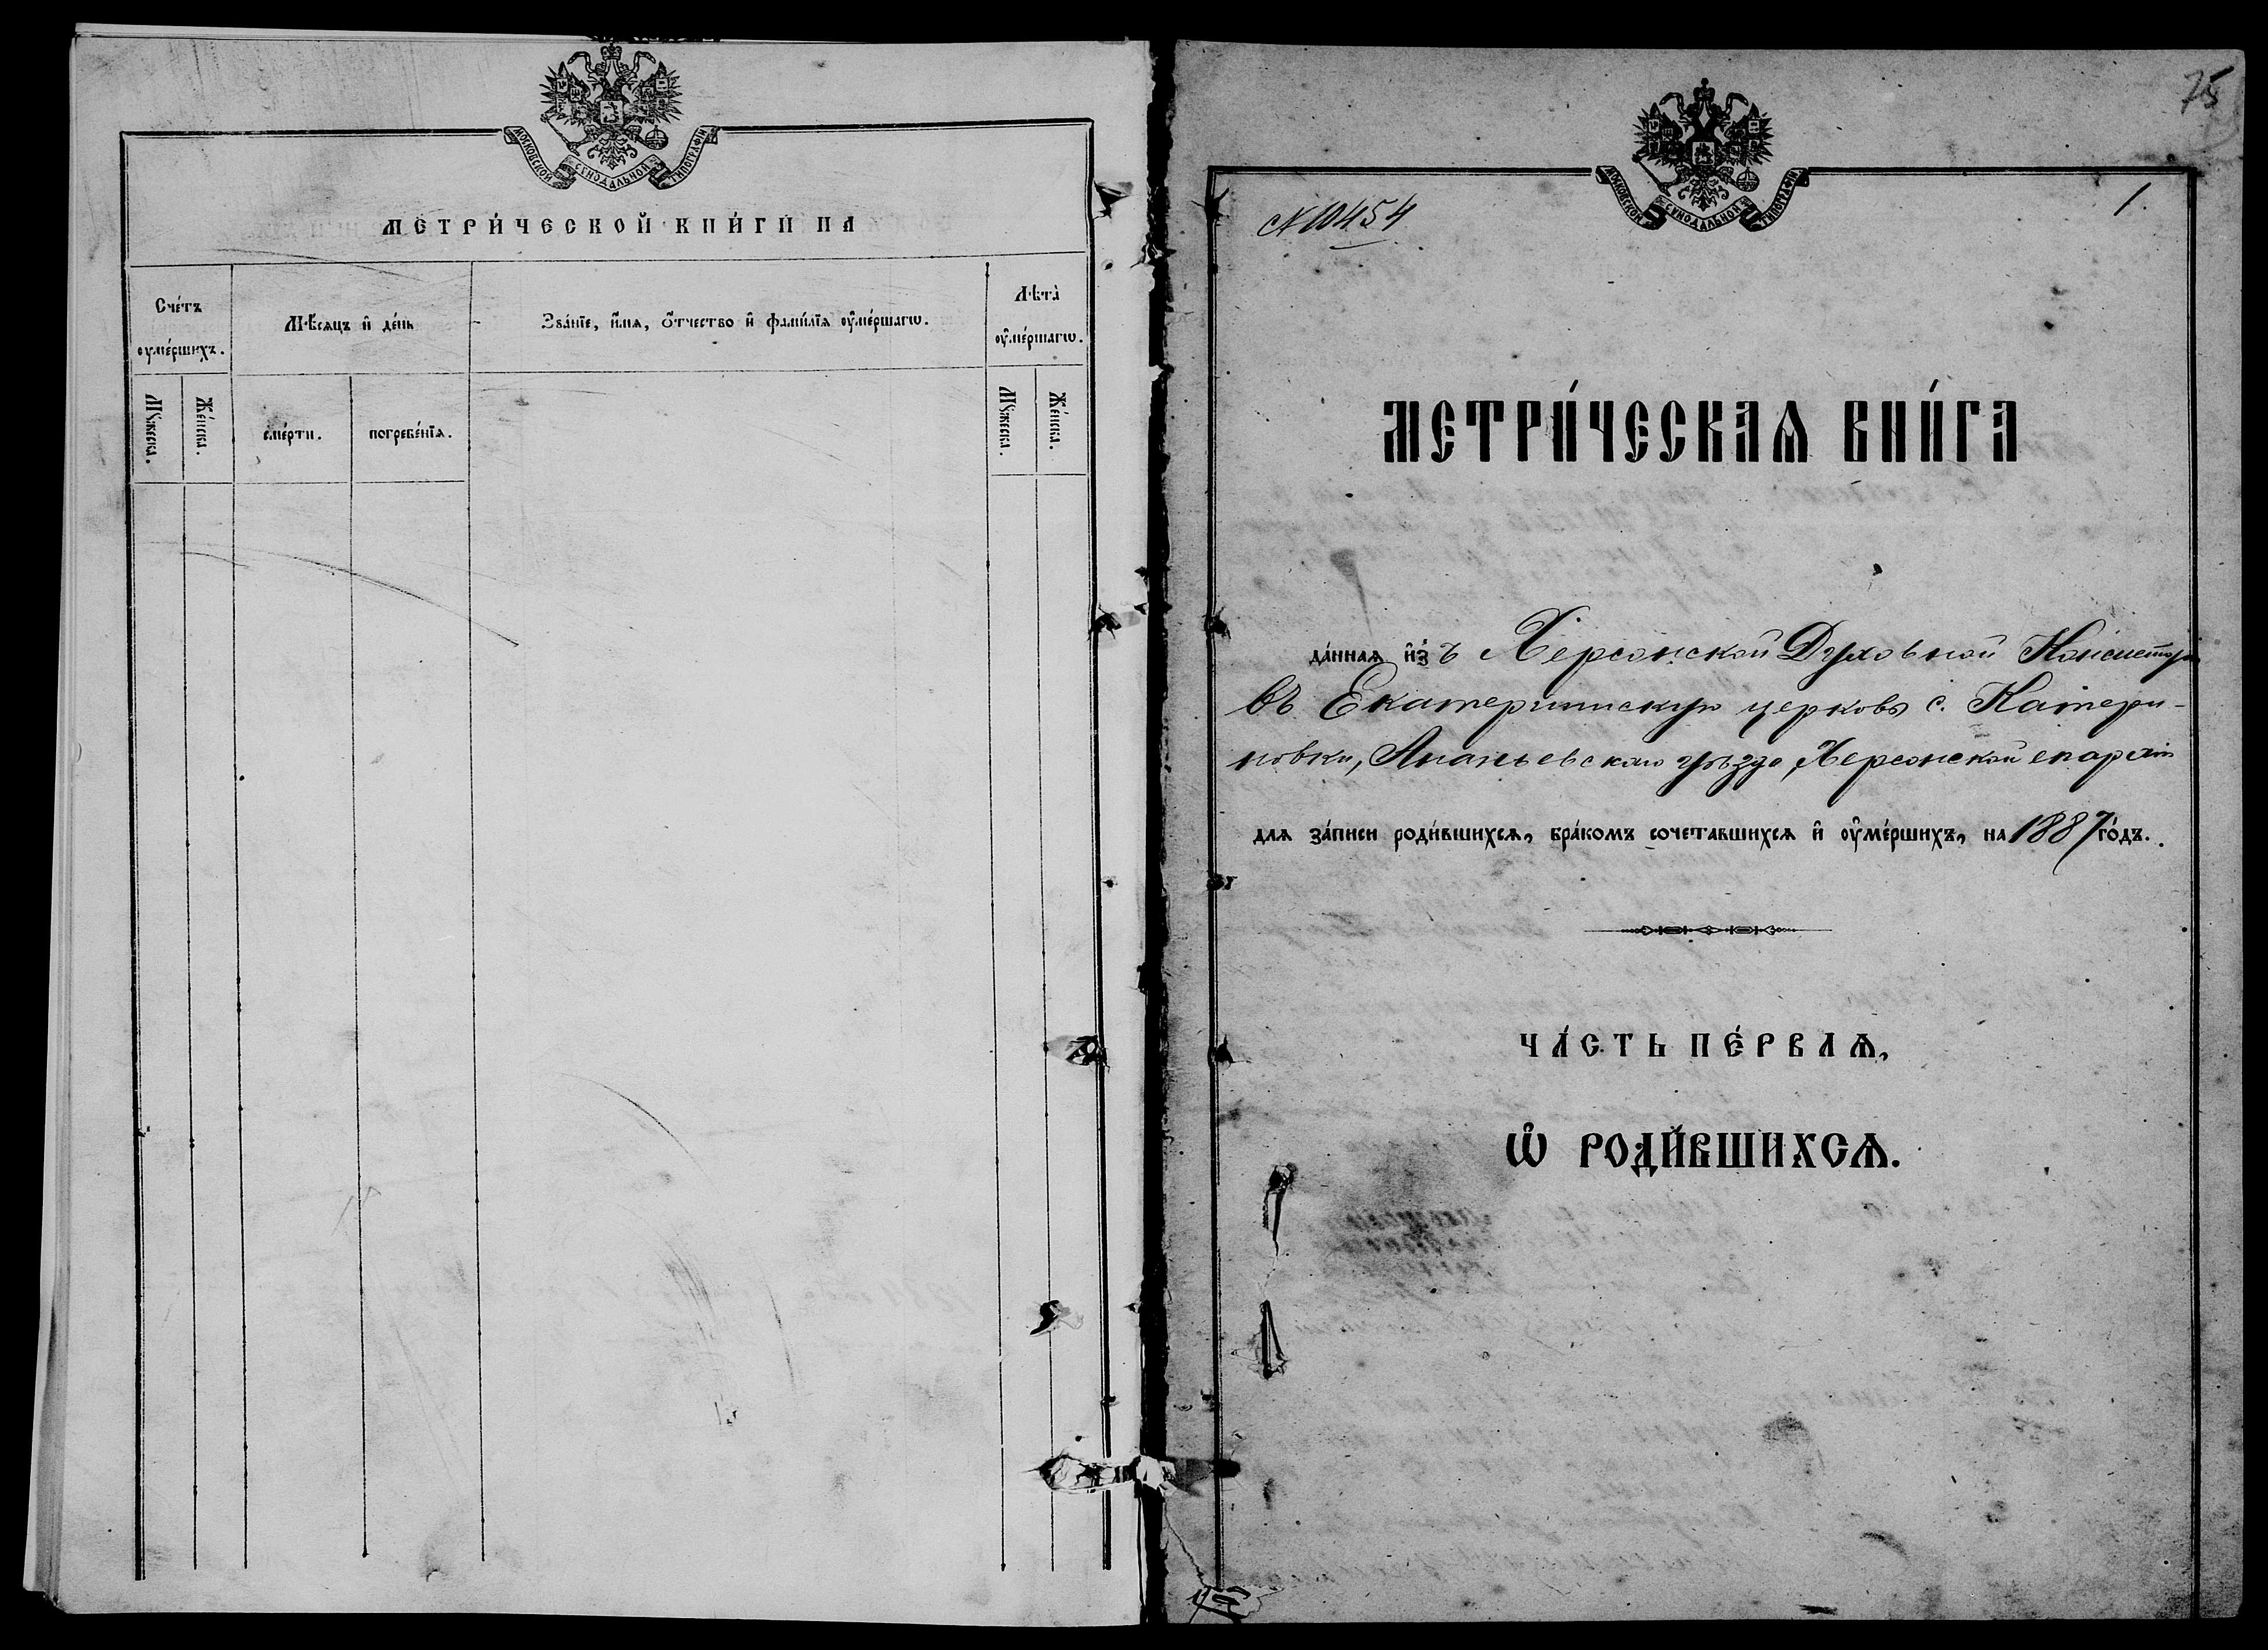 МОСКОВСКОЙ СѴНОДАЛЬНОЙ ТИПОГРАФІИ
МЕТРИ́ЧЕСКОЙ КНИ́ГИ НА
Сче́тъ ᲂу҆ме́ршихъ.
Мѣ́сяцъ и҆ де́нь
Зва́нїе, и҆́мѧ, ѻ҆́тчество и҆ фами́лїѧ ᲂу҆ме́ршагѡ.
Лѣта̀ ᲂу҆ме́ршагѡ.
Мꙋ́жеска.
Же́нска.
сме́рти.
погребе́нїѧ.
Мꙋ́жеска.
Же́нска.
75
МОСКОВСКОЙ СѴНОДАЛЬНОЙ ТИПОГРАФІИ
№ 10454
1.
МЕТРИ́ЧЕСКАѦ КНИ́ГА
да́ннаѧ и҆зъ Херсонской Духовной Консистор
въ Екатерининскую церковь с. Катери-
новки, Ананьевскаго уѣзда, Херсонской епархіи
для за́писи роди́вшихсѧ, бра́комъ сочетавшихсѧ и҆ ᲂу҆ме́ршихъ, на 1887 го́дъ.
ЧА́СТЬ ПЕ́РВАѦ,
Ѽ РОДИ́ВШИХСѦ.